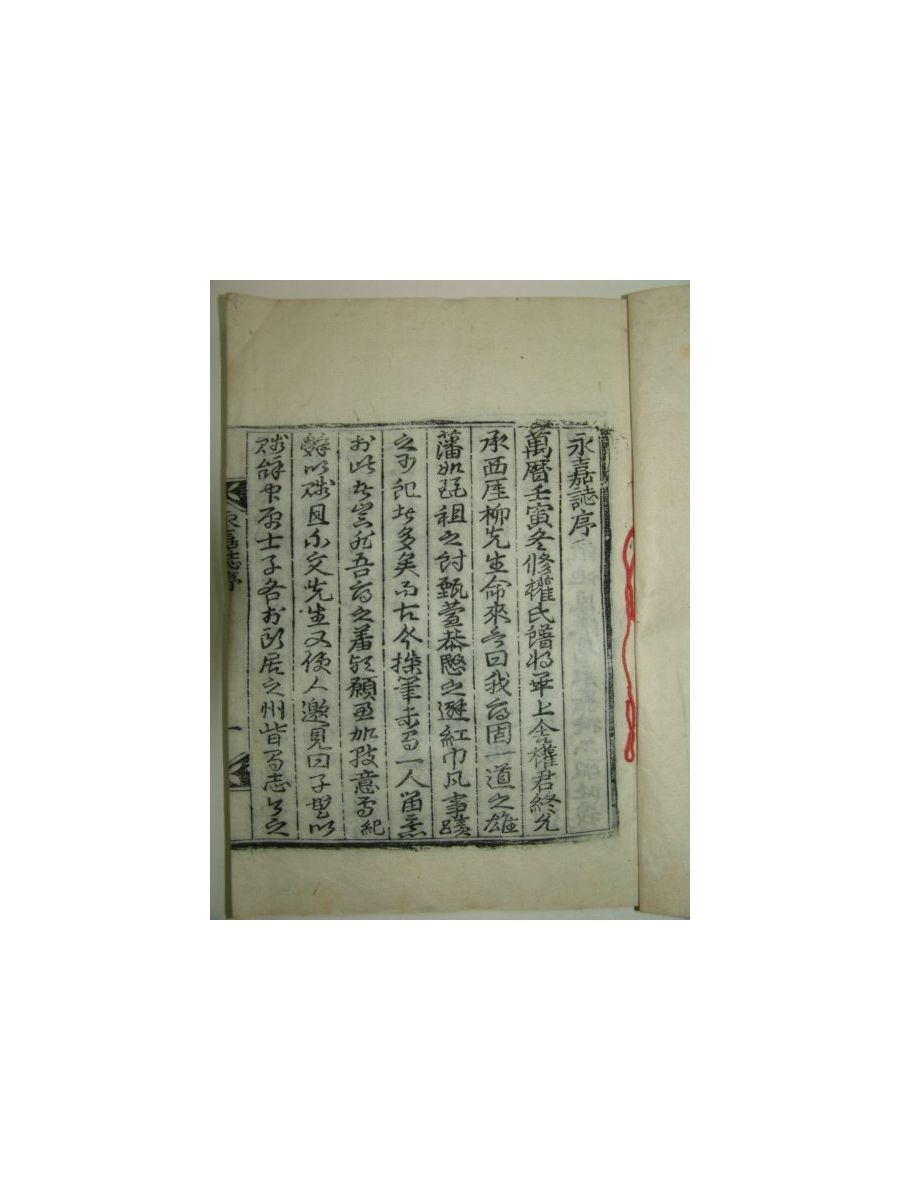 永嘉誌序
萬曆壬寅冬修權氏譜將畢上舍權君終允
承西厓柳先生命來言曰我府固一道之雄
藩如麗祖之討甄萱恭愍之避紅巾凡事蹟
之可記者多矣而古今操筆未有一人留意
於此者豈非吾府之羞歟願亟加致意焉紀
辭以淺且不文先生又使人邀見曰子毋以
淺辭中原士子各於所居之州皆有志公之
永嘉誌序
一